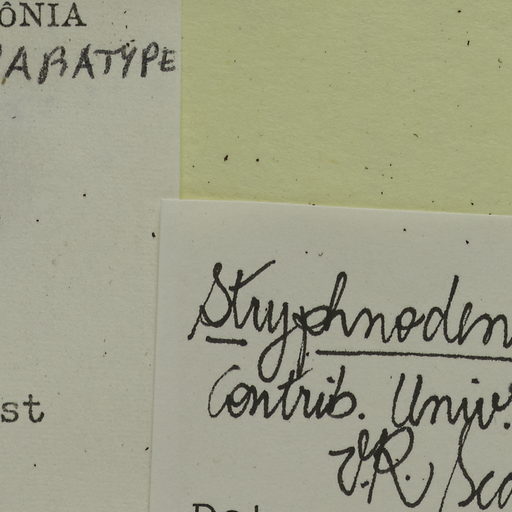 ÔNIA
PARATYPE
st
Stryphnoden
Contrib. Univ.
V.R. Sca
Det